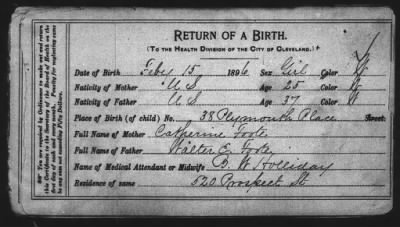 RETURN OF A BIRTH.
(TO THE HEALTH DIVISION OF THE CITY OF CLEVELAND.)
Date of Birth Feby 15 1896 Sex Girl Color W
Nativity of Mother U S Age 25 Color W
Nativity of Father U S Age 37 Color W
Place of Birth (of child) No. 38 Plymouth Place Street
Full Name of Mother Catherine Foote
Full Name of Father Walter E. Foote
Name of Medical Attendant or Midwife B. W. Holliday
Residence of same 520 Prospect St
You are required by Ordinance to make out and return
this Certificate to the Secretary of the Board of Health on the
first day of each and every month. Penalty for neglecting same
to any one not exceeding Fifty Dollars.